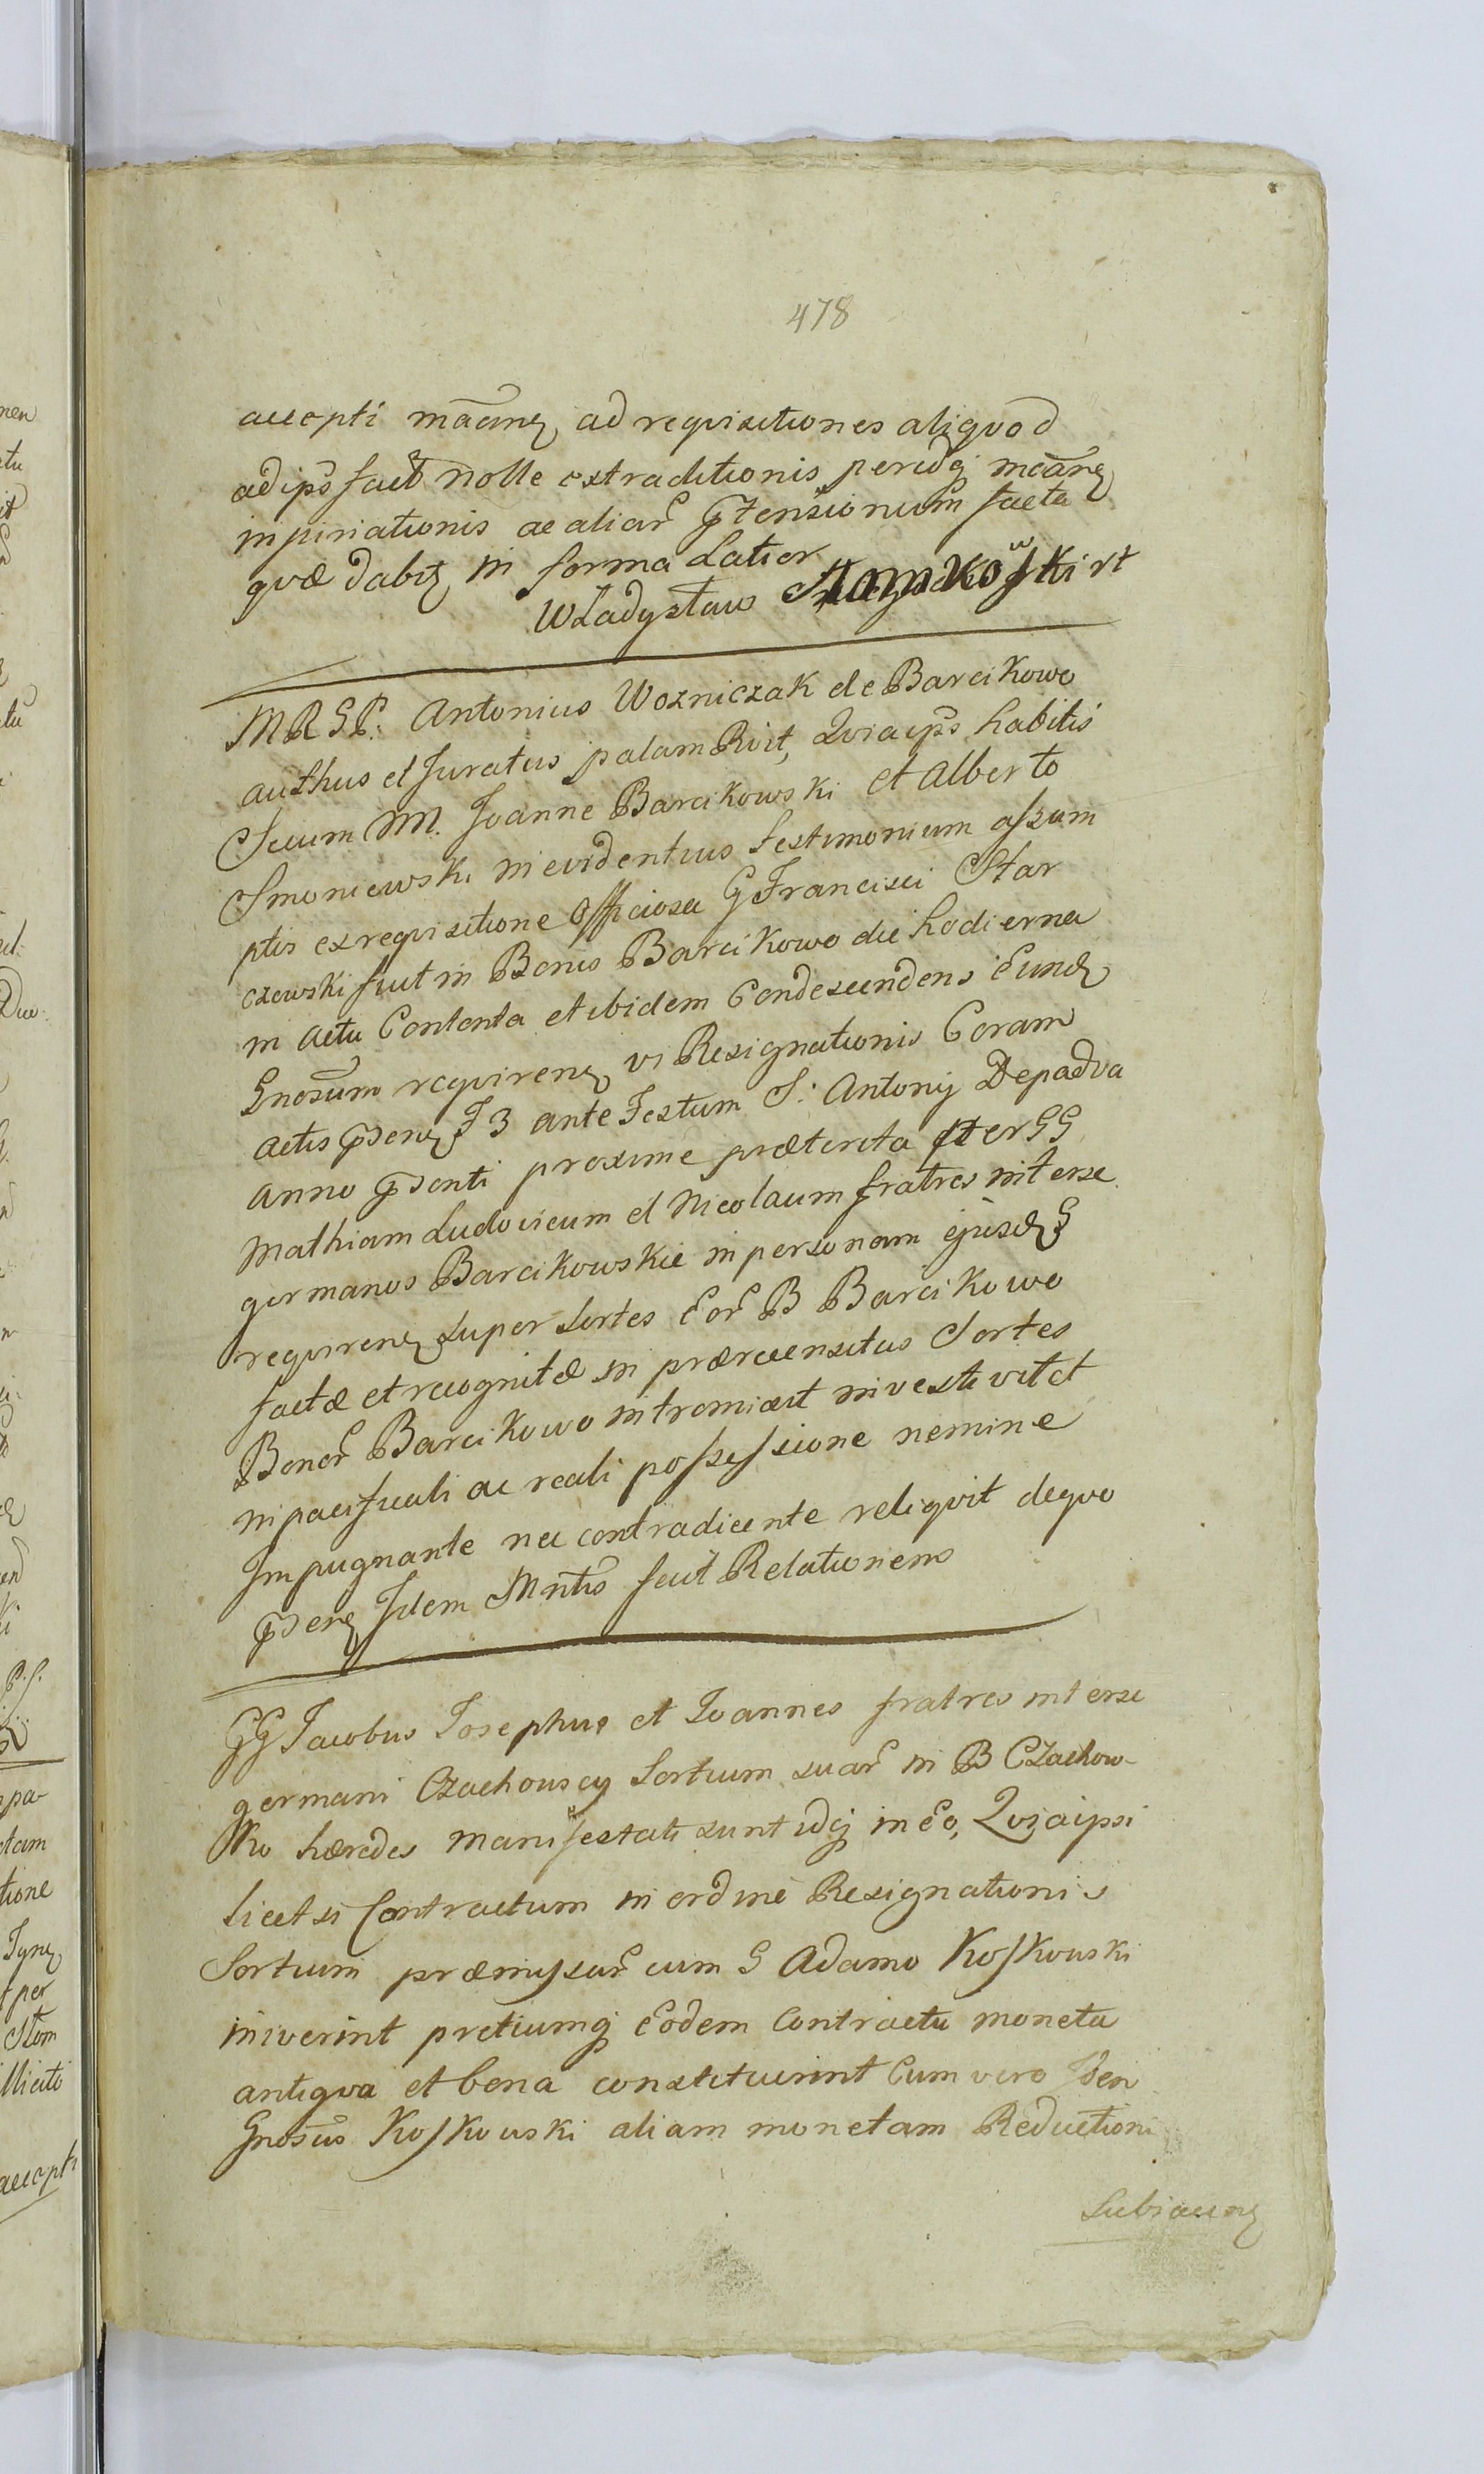 478
accepti mãcinȩ ad requisitiones aliquod
ad ips̃ facit nolle extraditionis peridq̨ mãcinȩ
injuriationis ac aliar̃ p̃tensionum facta
quæ dabit̨ in forma Latior
Wladysław Słomkowski rt
MRGP: Antonius Wozniczak de Barcikowo
authus et Juratus palam Rvit, Quia ips̃ habitis
Secum NN. Joanne Barcikowski et Alberto
Smoniewski in evidentius testimonium assum
ptis ex requisitione officiosa G Francisci Star
czewski fuit in Bonis Barcikowo die hodierna
in actu Contenta et ibidem Condescendens Eund̨
Gnosum requirenȩ vi Resignationis Coram
actis p̃senȩ F 3 ante Festum S: Antonij Depadva
anno p̃senti proxime præterita per GG
Mathiam Ludovicum et Nicolaum fratres inter se
germanos Barcikowskie in personam ejusd̨ G
requirenȩ super Sortes Eor̃ B Barcikowo
factæ et recognitæ in præreensitas Sortes
Bonor̃ Barcikowo intromisit investivit et
in pacifuali ac reali possessione nemine
Impugnante nec contradicente reliquit de quo
p̃senȩ Idem Mntis̃ fecit Relationem
GG Jacobus Josephus et Joannes fratres inter se
germani Czachouscy Sortium suar̃ in B Czachow-
Ko hæredes manifestati sunt idq̨ in Eo, Quia ipsi
licet si Contractum in ordine Resignationis
Sortium præmissar̃ cum G Adamo Koskouski
iniverint pretiumq̨ Eodem Contractu moneta
antiqva et bona constituerint Cum vero Iden
Gnosus Koskouski aliam monetam Reductioni
Subiacenȩ